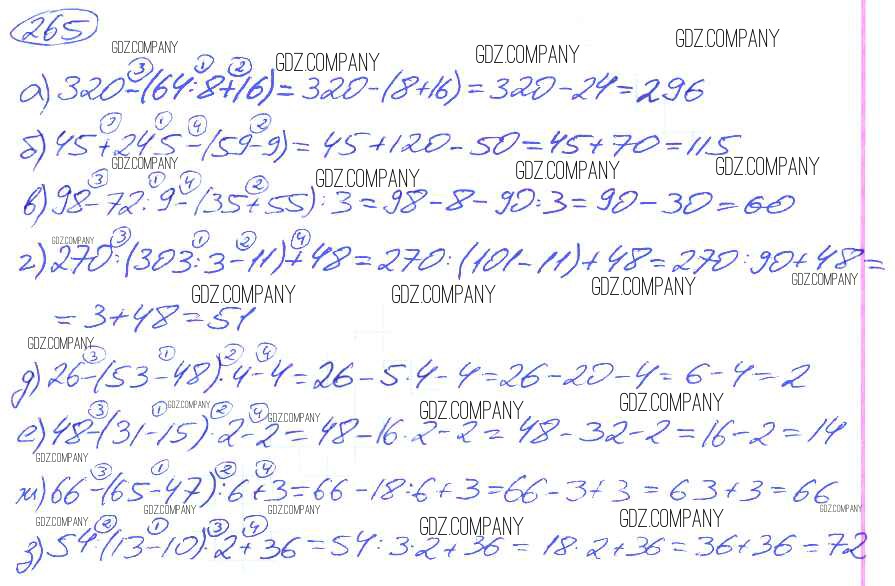 265
GDZ.COMPANY GDZ.COMPANY GDZ.COMPANY GDZ.COMPANY
3 1 2
а) 320-(64:8+16)=320-(8+16)=320-24=296
3 1 4 2
б) 45+24·5-(59-9)=45+120-50=45+70=115
GDZ.COMPANY GDZ.COMPANY GDZ.COMPANY GDZ.COMPANY
3 1 4 2
в) 98-72:9-(35+55):3=98-8-90:3=90-30=60
GDZ.COMPANY 3 1 2 4
г) 270:(303:3-11)+48=270:(101-11)+48=270:90+48=
GDZ.COMPANY GDZ.COMPANY GDZ.COMPANY GDZ.COMPANY
=3+48=51
GDZ.COMPANY
3 1 2 4
д) 26-(53-48)·4-4=26-5·4-4=26-20-4=6-4=2
3 1 GDZ.COMPANY 2 4 GDZ.COMPANY GDZ.COMPANY GDZ.COMPANY
е) 48-(31-15)·2-2=48-16·2-2=48-32-2=16-2=14
GDZ.COMPANY
3 1 2 4
ж) 66-(65-47):6+3=66-18:6+3=66-3+3=63+3=66
GDZ.COMPANY GDZ.COMPANY GDZ.COMPANY GDZ.COMPANY GDZ.COMPANY GDZ.COMPANY
2 1 3 4
з) 54:(13-10)·2+36=54:3·2+36=18·2+36=36+36=72